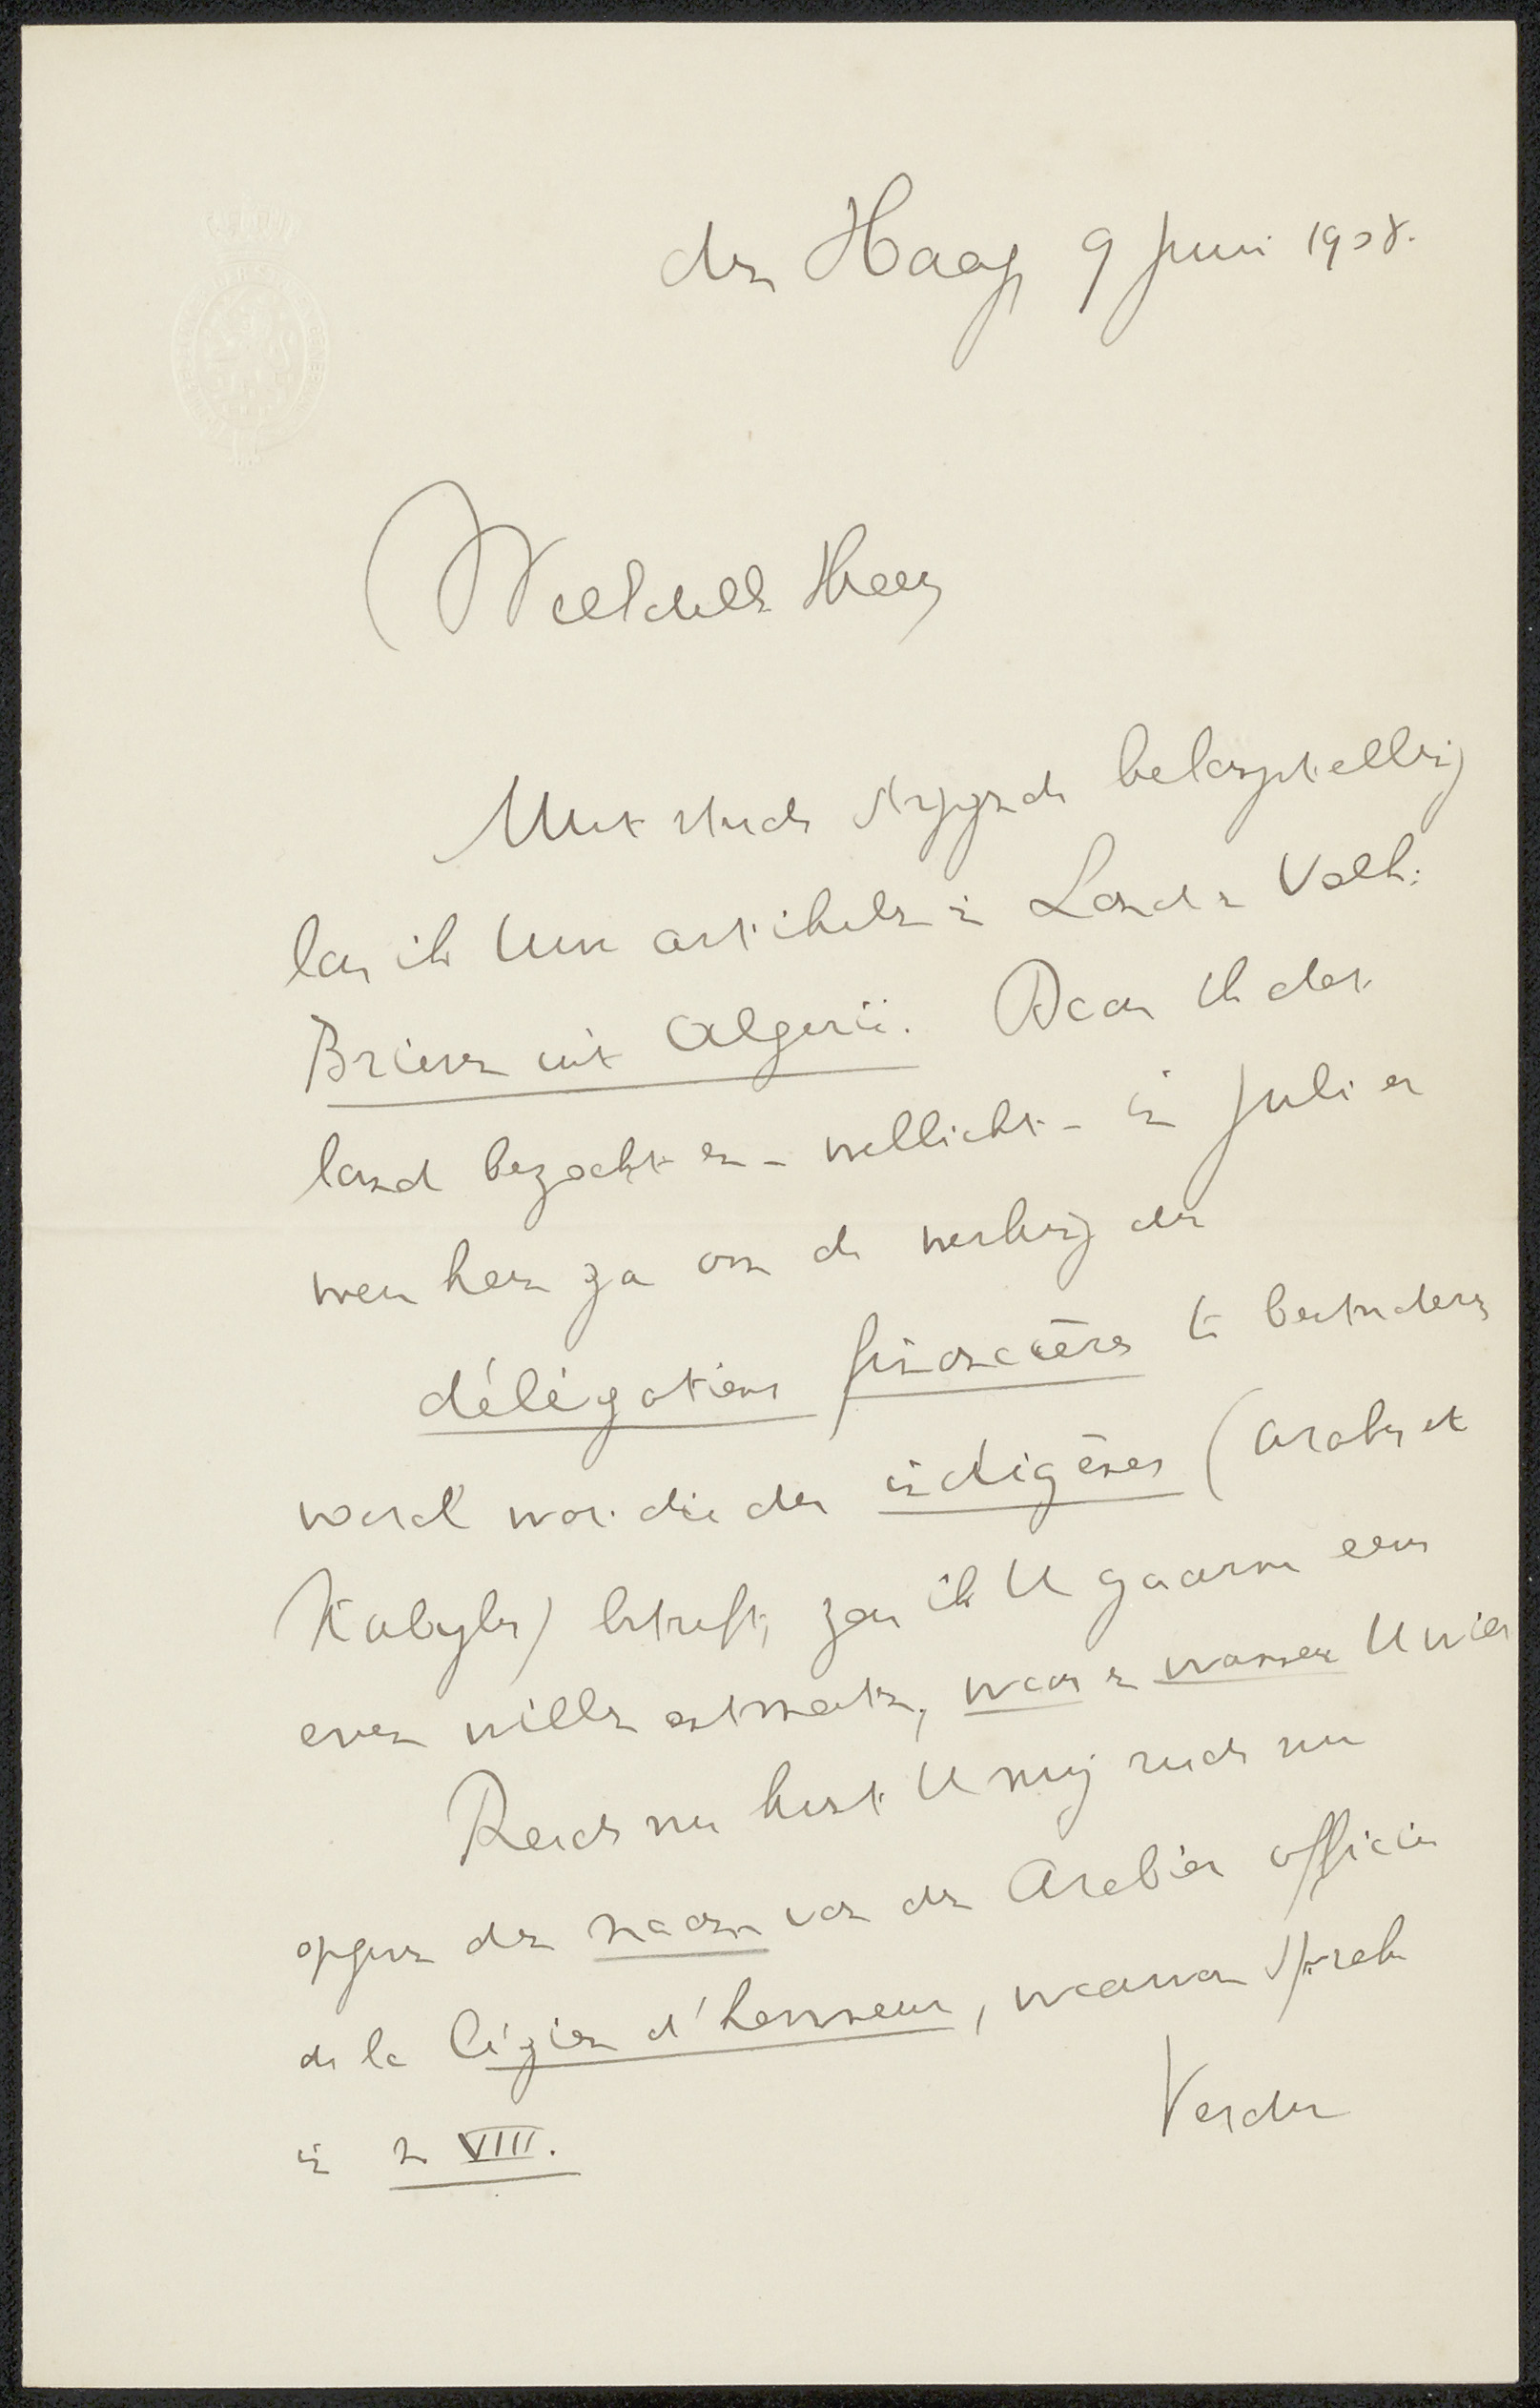 den Haag 9 Juni 1908.
WelEdele Heer
Met steeds stijgende belangstelling
las ik Uw artikelen in Land en Volk:
Brieven uit Algerië. Daar ik dat
land bezocht en - wellicht - in Juli er
weer heen ga om de werking der
délégations financières te bestudeeren
vooral wat die der indigènes (Arabes et
Kabyles) betreft, zou ik U gaarne eens
even willen ontmoeten, waar en wanneer U wil
Reeds nu kunt U mij reeds nu
opgeven den naam van den Arabier officier
de la légion d'honneur, waarvan sprake
in n VIII.
Verder